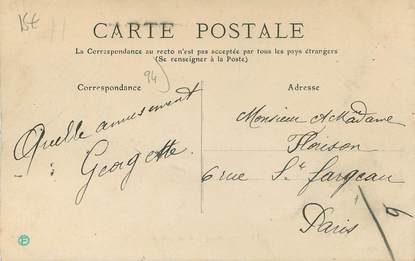 15€
CARTE POSTALE
La Correspondance au recto n'est pas acceptée par tous les pays étrangers
(Se renseigner à la Poste)
Correspondance
94
Adresse
Quelle amusement
Georgette
Monsieur & Madame
Flouson
6 rue St fargeau
Paris